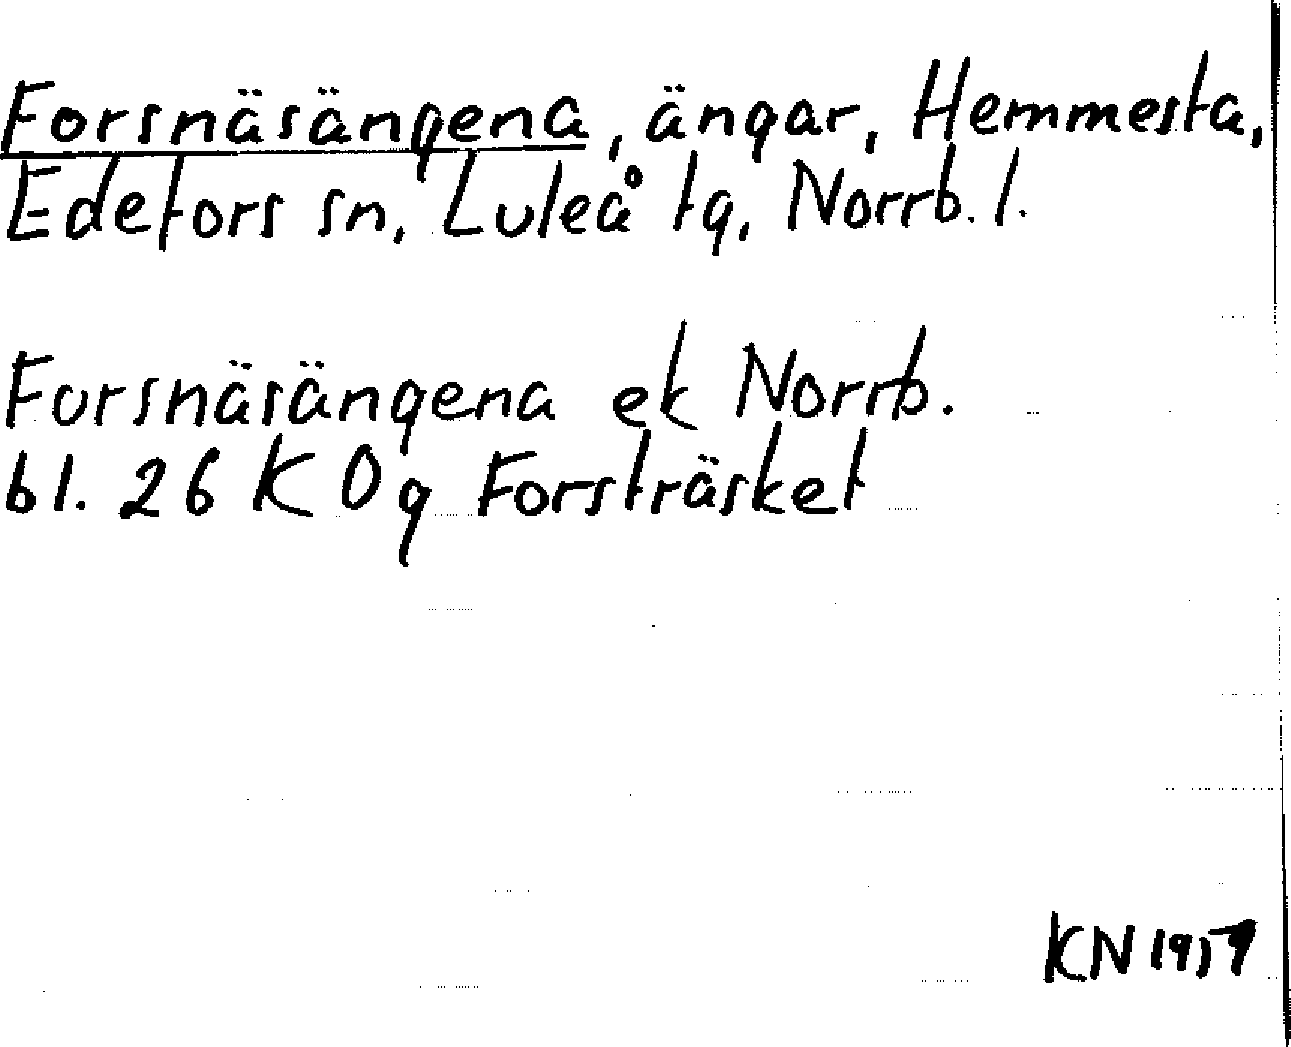 Forsnäsängena, ängar, Hemmesta,
Edefors sn, Luleå tg, Norrb. l.
Forsnäsängena ek Norrb.
bl. 26 K Og Forsträsket
KN 1957